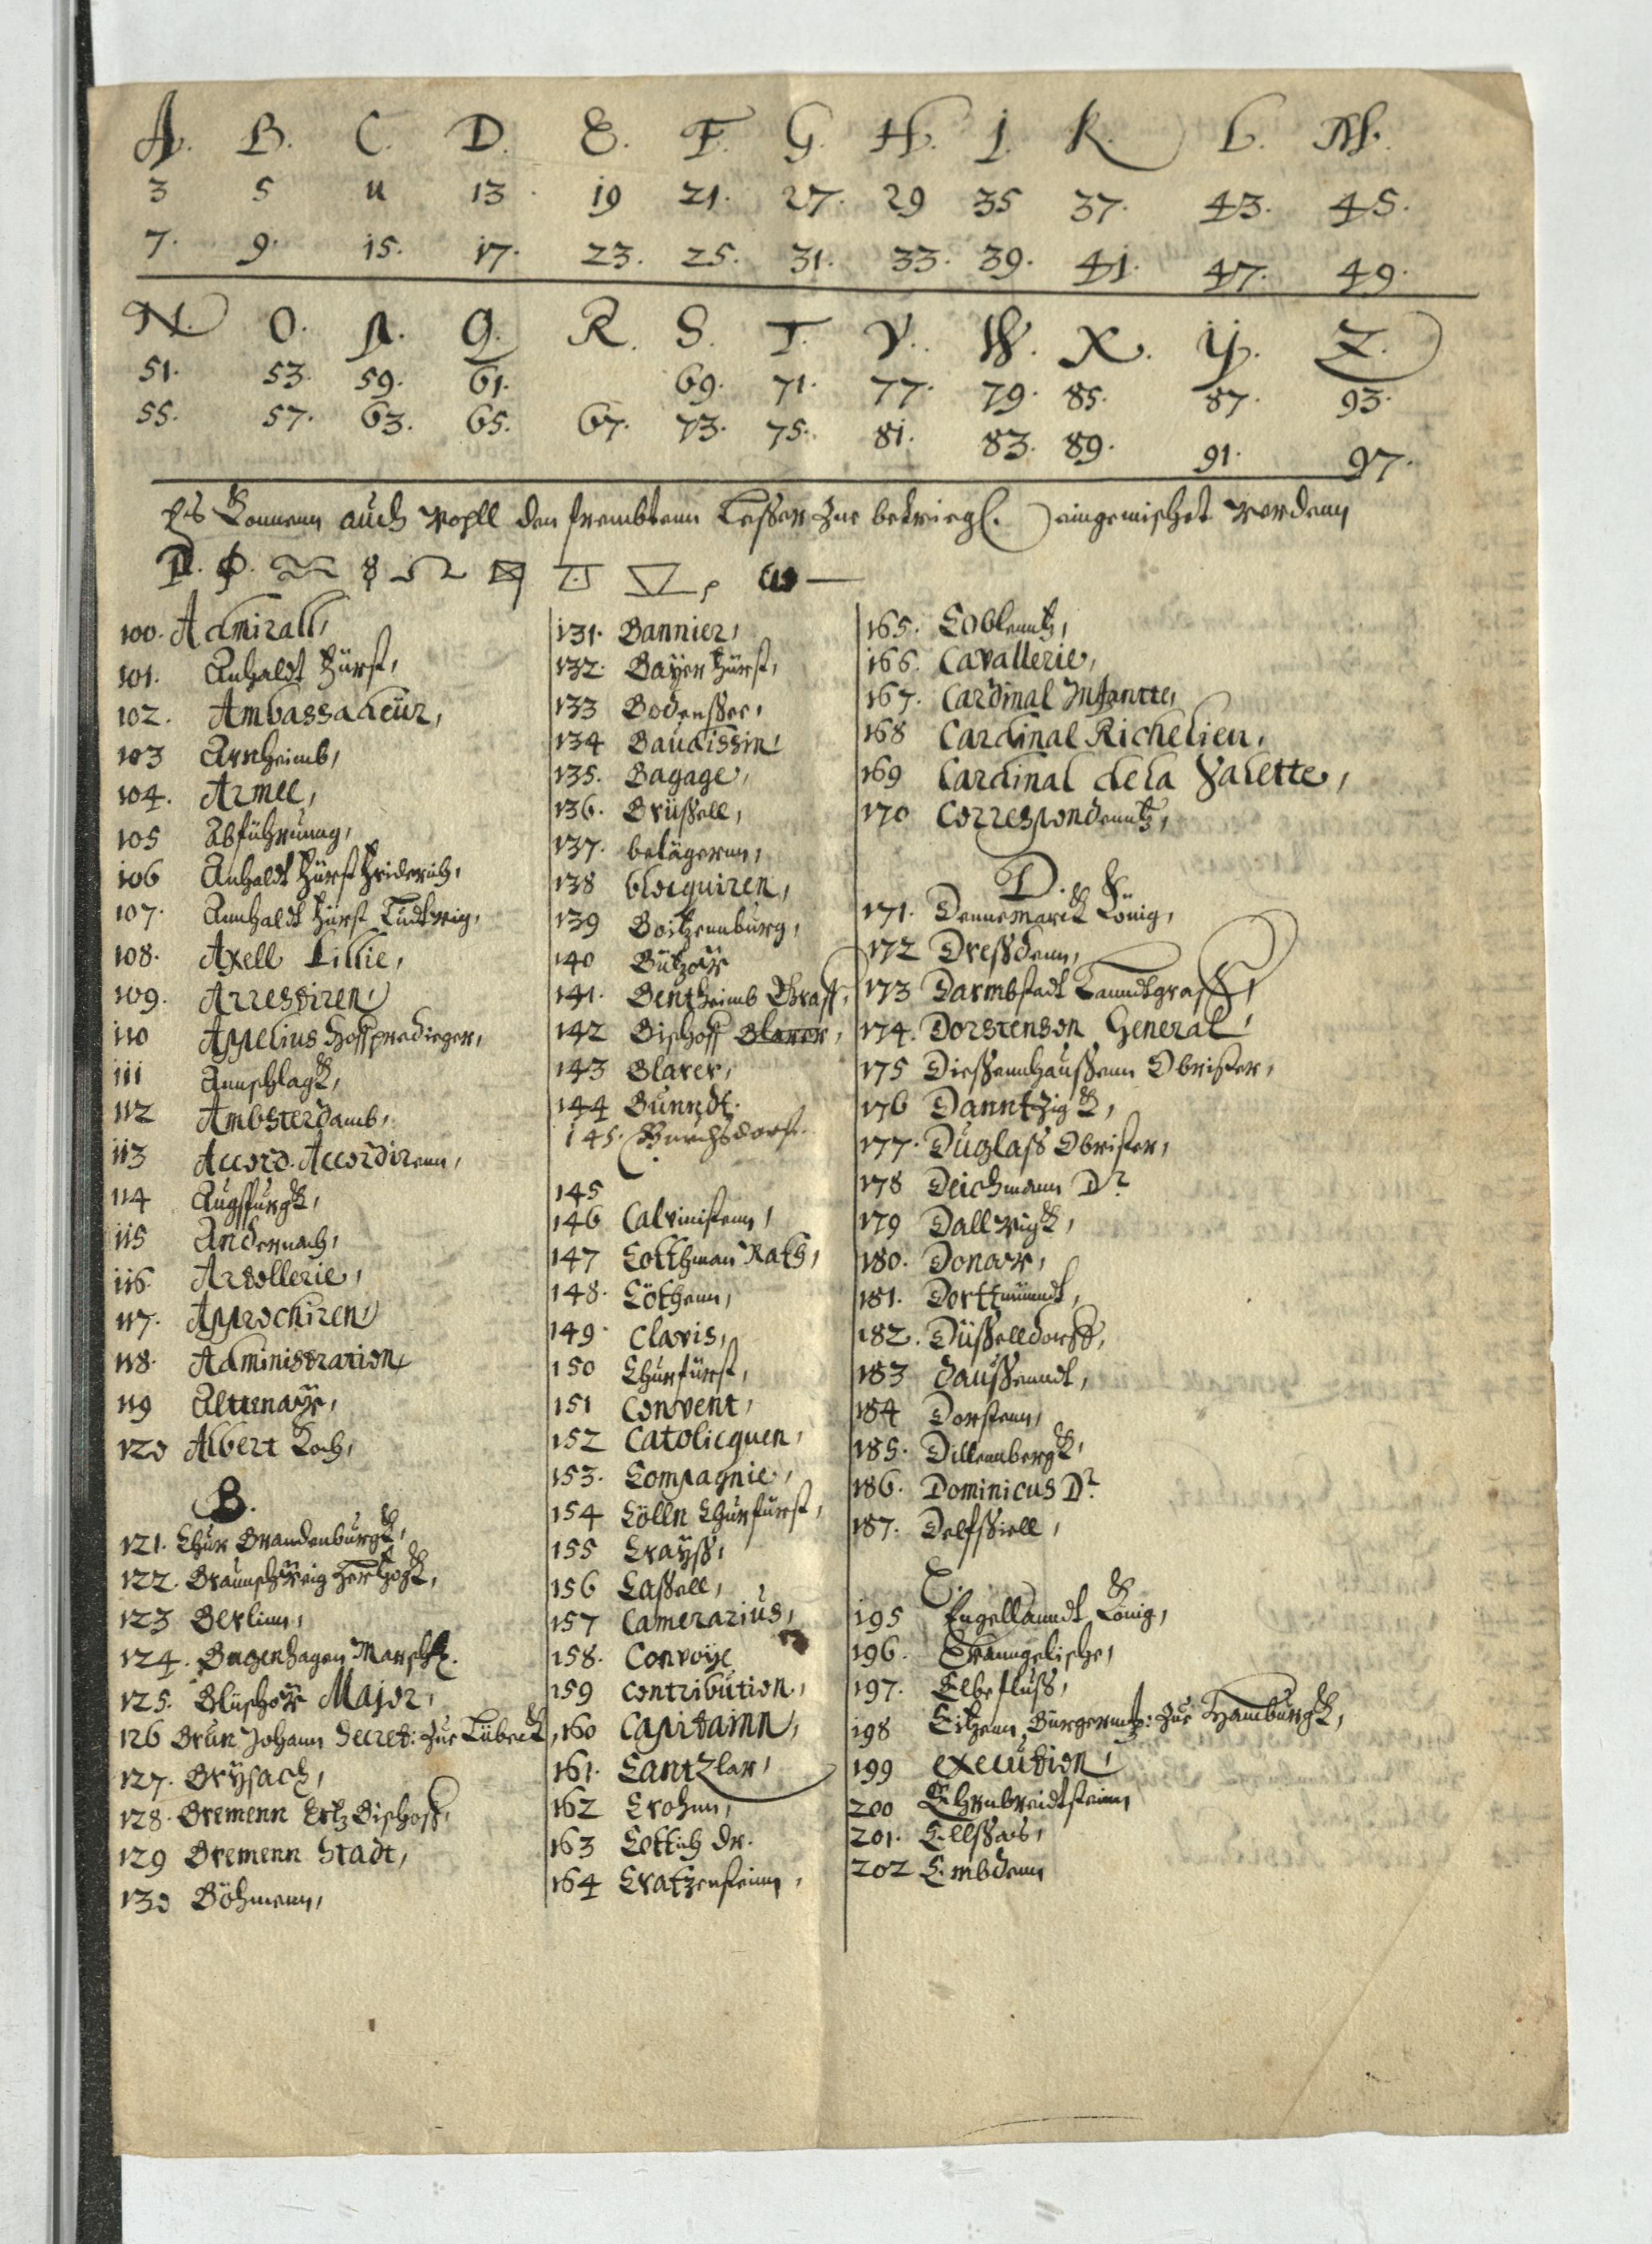 A. B. C. D. E. F. G. H. I. K. L. M.
3 5 11 13. 19 21. 27. 29 35 37. 43. 45.
7. 9. 15. 17. 23. 25. 31. 33. 39. 41. 47. 49.
N. O. P. Q. R. S. T. V. W. X. Y. Z.
51. 53. 59. 61. 69. 71. 77. 79. 85. 87. 93.
55. 57. 63. 65. 67. 73. 75. 81. 83. 89. 91. 97.
Es konnenn auch wohll den frembtenn Lesser zue betriegl. eingemischet werdenn
100. Admirall,
101. Anhaldt Fürst,
102. Ambassadeur,
103 Arnheimb,
104. Armee,
105 Abführung,
106 Anhaldt Fürst Friderich,
107. Annhaldt Fürst Ludtwig,
108. Axell Lillie,
109. Arrestiren,
110 Appelius Hoffprediger,
111 Annschlagk,
112 Ambsterdamb,
113 Accord. Accordirenn,
114 Augspurgk,
115 Andernach,
116. Artollerie,
117. Approchiren,
118. Administration,
119 Altenaÿe,
120 Albert Koch,
B.
121. Chur Brandenburgk,
122. Braunschweig Hertzogk,
123 Berlinn,
124. Bugenhagen Marsch.
125. Blüchow Major,
126 Brun Johann Secret: zue Lübeck,
127. Brÿsach,
128. Bremenn Ertz Bischoff,
129 Bremenn Stadt,
130 Böhmenn,
131. Bannier,
132. Bayer Fürst,
133 Bodensser,
134 Baudissin,
135. Bagage,
136. Brüssell,
137. belägernn,
138 blocquiren,
139 Boitzennburg,
140 Bützow
141. Bentheimb Graff,
142 Bischoff Blarer,
143 Blarer,
144 Bunndt.
145. Burchsdorf.
C.
145
146 Calvinistenn,
147 Cotthman Rath,
148. Cöthenn,
149. Clavis,
150 Churfürst,
151 Convent,
152 Catolicquen,
153. Compagnie,
154 Cölln Churfürst,
155 Crayss,
156 Cassell,
157 Camerarius,
158. Convoye
159 Contribution,
160 Capitainn,
161. Cantzlar,
162 Crohnn,
163 Cottich Dr.
164 Cratzensteinn,
165. Coblenntz,
166. Cavallerie,
167. Cardinal Infantte,
168 Cardinal Richelieu,
169 Cardinal de la Valette,
170 Correspondenntz,
D.
171. Dennemarck König,
172 Dressdenn,
173 Darmbstadt Lanndtgraff,
174. Dorstenson General,
175 Diessennhaussenn Obrister,
176 Danntzigk,
177. Duglass Obrister,
178 Deichmann Dr
179 Dallwigk,
180. Donaw,
181. Dorttmundt,
182. Düsselldorff,
183 Daussenndt,
184 Dorstenn,
185. Dillennbergk,
186. Dominicus Dr
187. Delfssiell,
E.
195 Engellanndt König,
196. Evanngelische,
197. Elbefluss,
198 Eitzenn Burgermst: zue Hamburgk,
199 execution,
200 Ehrnbreidtsteinn
201. Ellssas,
202 Embdenn